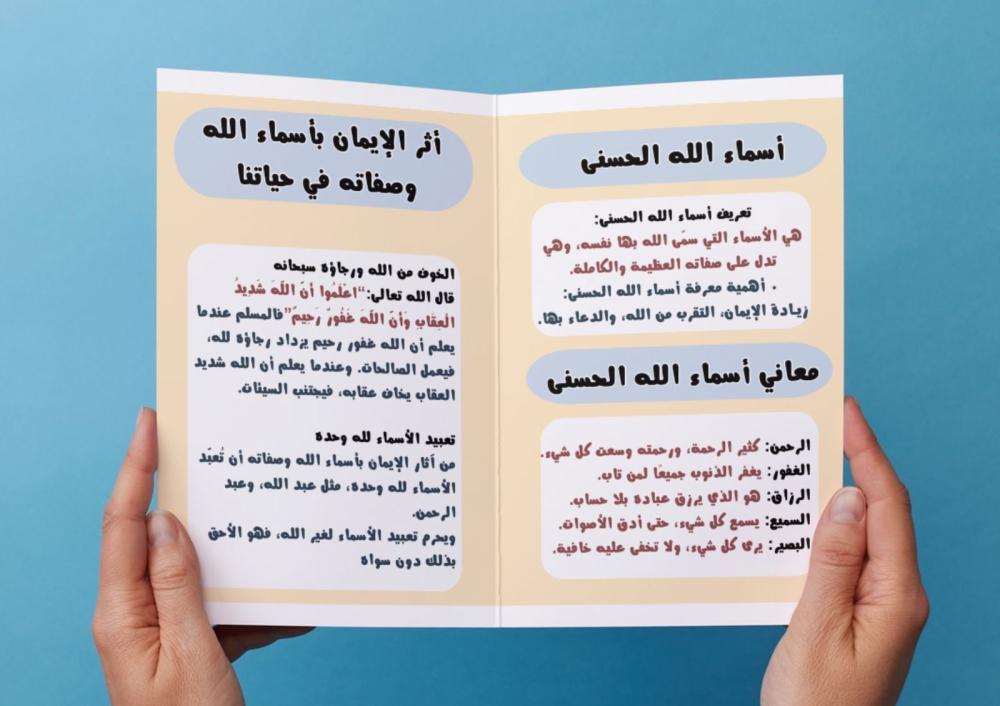 أسماء الله الحسنى
تعريف أسماء الله الحسنى:
هي الأسماء التي سمّى الله بها نفسه، وهي
تدل على صفاته العظيمة والكاملة.
• أهمية معرفة أسماء الله الحسنى:
زيادة الإيمان، التقرب من الله، والدعاء بها.
معاني أسماء الله الحسنى
الرحمن: كثير الرحمة، ورحمته وسعت كل شيء.
الغفور: يغفر الذنوب جميعًا لمن تاب.
الرزاق: هو الذي يرزق عباده بلا حساب.
السميع: يسمع كل شيء، حتى أدق الأصوات.
البصير: يرى كل شيء، ولا تخفى عليه خافية.
أثر الإيمان بأسماء الله
وصفاته في حياتنا
الخوف من الله ورجاؤه سبحانه
قال الله تعالى:“اعْلَمُوا أَنَّ اللَّهَ شَدِيدُ
الْعِقَابِ وَأَنَّ اللَّهَ غَفُورٌ رَحِيمٌ”فالمسلم عندما
يعلم أن الله غفور رحيم يزداد رجاؤه لله،
فيعمل الصالحات. وعندما يعلم أن الله شديد
العقاب يخاف عقابه، فيجتنب السيئات.
تعبيد الأسماء لله وحده
من آثار الإيمان بأسماء الله وصفاته أن تُعبّد
الأسماء لله وحده، مثل عبد الله، وعبد
الرحمن.
ويحرم تعبيد الأسماء لغير الله، فهو الأحق
بذلك دون سواه